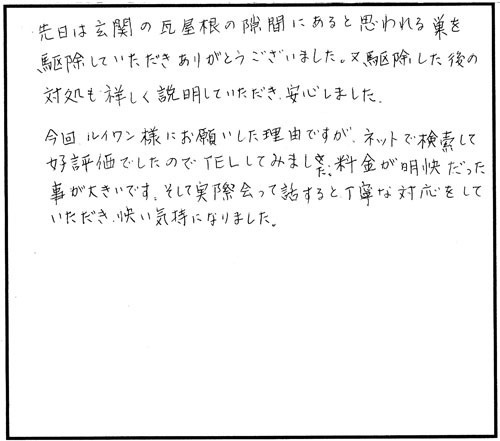 先日は玄関の瓦屋根の隙間にあると思われる巣を
駆除していただきありがとうございました。又駆除した後の
対処も詳しく説明していただき、安心しました。
今回ルイワン様にお願いした理由ですが、ネットで検索して
好評価でしたのでTELしてみました。料金が明快だった
事が大きいです。そして実際会って話すると丁寧な対応をして
いただき、快い気持になりました。